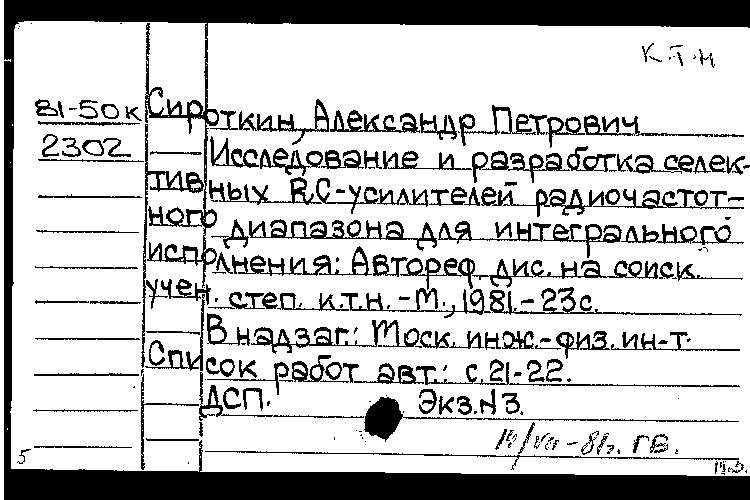 К.Т.Н
81-50к Сироткин, Александр Петрович
2302 Исследование и разработка селек-
тивных RC-усилителей радиочастот-
ного диапазона для интегрального
исполнения: Автореф. дис. на соиск.
учен. степ. к.т.н. - М., 1981. - 23с.
В надзаг.: Моск. инж.-физ. ин-т.
Список работ авт.: с. 21-22.
ДСП. Экз. N 3.
14/VII - 81г. ГВ.
5